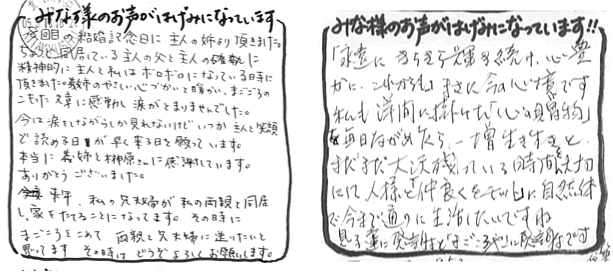 みな様のお声がはげみになっています
今回の結婚記念日に主人の姉より頂きました。
ちょうど同居している主人の父と主人の確執に
精神的に主人と私はボロボロになっている時に
頂きました。義姉のやさしい心づかいと暖かい、まごころの
こもった文章に感動し涙がとまりませんでした。
今は涙をしながらしか見れないけどいつか主人と笑顔
で読める日が早く来る日を願っています。
本当に義姉と榊原さんに感謝しています。
ありがとうございました。
来年、私の兄夫婦が私の両親と同居
し、家をたてることになってます。その時に
まごころをこめて両親と兄夫婦に送りたいと
思ってます その時はどうぞよろしくお願いします。
みな様のお声がはげみになっています!!
「永遠に きらきら輝き続け、心豊
かに、これからも」まさに今の心境です
私も洋間に掛けた「心の見宝物」
を毎日ながめたら、一増生き生きと
まだまだ大決残っている時間を大切
にして人様と「仲良くをモットー」に自然体
で今まで通りに生活したいですね